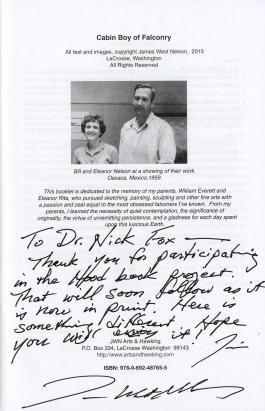 Cabin Boy of Falconry
All text and images, copyright James West Nelson, 2015
LaCrosse, Washington
All Rights Reserved
Bill and Eleanor Nelson at a showing of their work.
Oaxaca, Mexico, 1959.
This booklet is dedicated to the memory of my parents, William Everett and
Eleanor Rita, who pursued sketching, painting, sculpting and other fine arts with
a passion and zeal equal to the most obsessed falconers I've known. From my
parents, I learned the necessity of quiet contemplation, the significance of
originality, the virtue of unremitting persistence, and a gladness for each day spent
upon this luscious Earth.
To Dr. Nick Fox —
Thank you for participating
in the Hood book project.
That will soon follow as it
is now in print. Here is
something different. Hope
you will enjoy it!
JWN Arts & Hawking
P.O. Box 334, LaCrosse Washington 99143
http://www.artsandhawking.com
ISBN: 978-0-692-48765-5